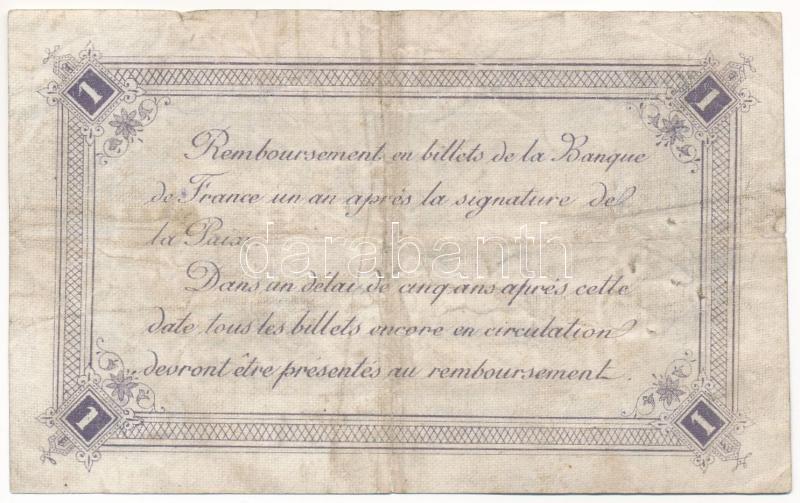 1 1
Remboursement en billets de la Banque
de France un an après la signature de
la Paix.
darabanth
Dans un délai de cinq ans après cette
date tous les billets encore en circulation
devront être présentés au remboursement.
1 1